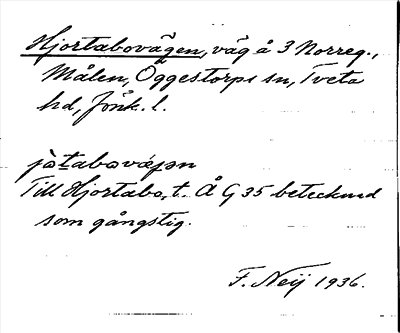 Hjortabovägen, väg å 3 Norreg.,
Målen, Öggestorps sn, Tveta
hd, Jönk. l.
jòtabovä́ɡən
Till Hjortabo, t. Å G 35 betecknad
som gångstig.
F. Neij 1936.